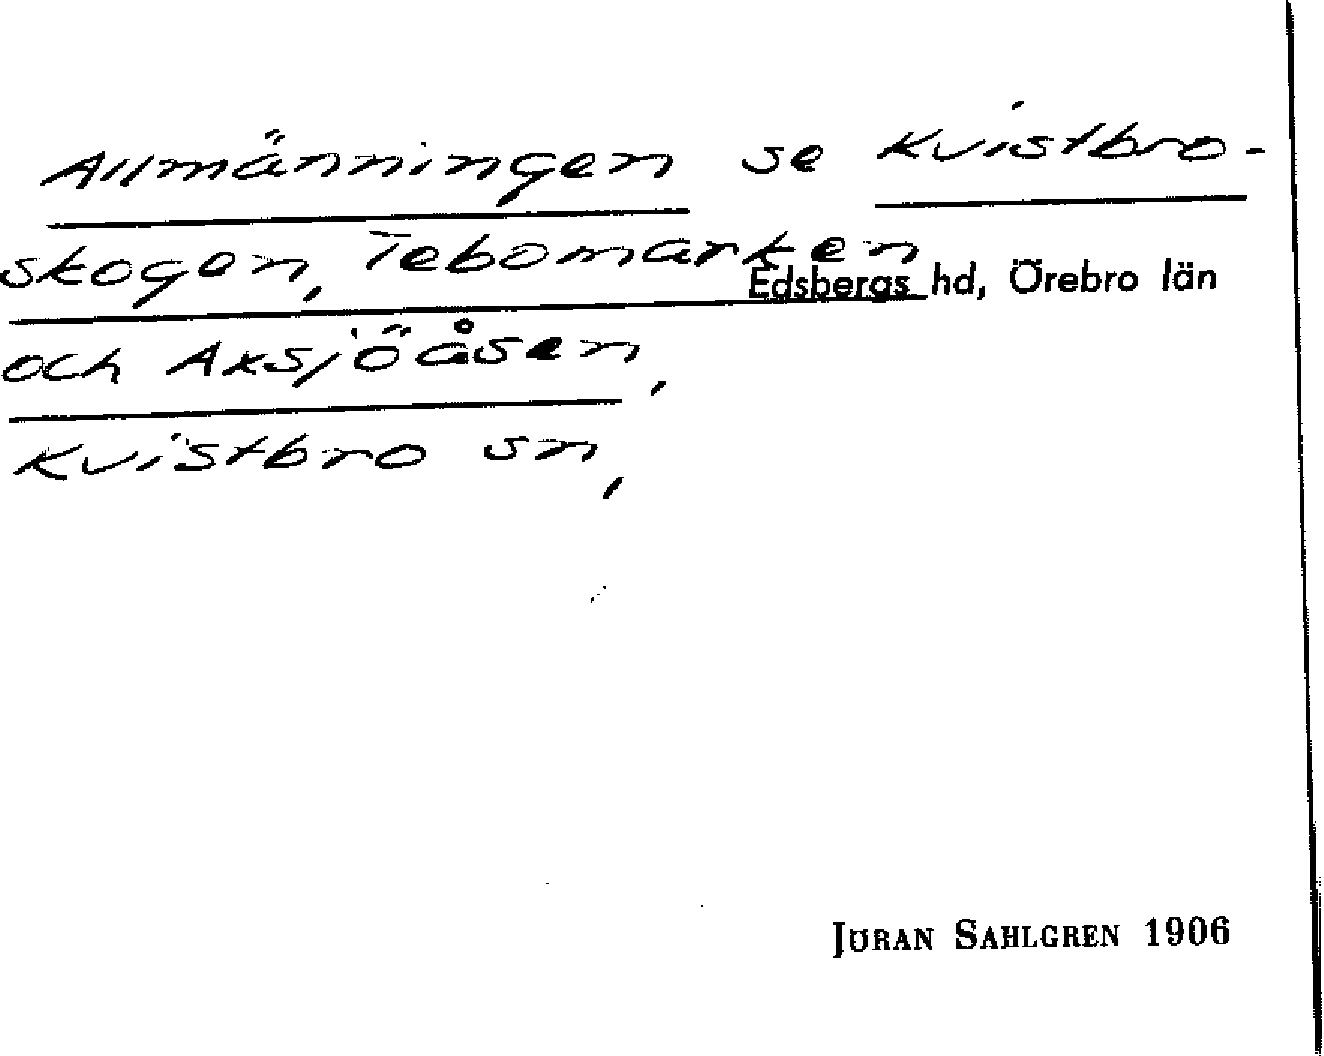 Allmänningen se Kvistbro-
skogen, Tebomarken
Edsbergs hd, Örebro län
och Aksjöåsen,
Kvistbro sn,
JÖRAN SAHLGREN 1906